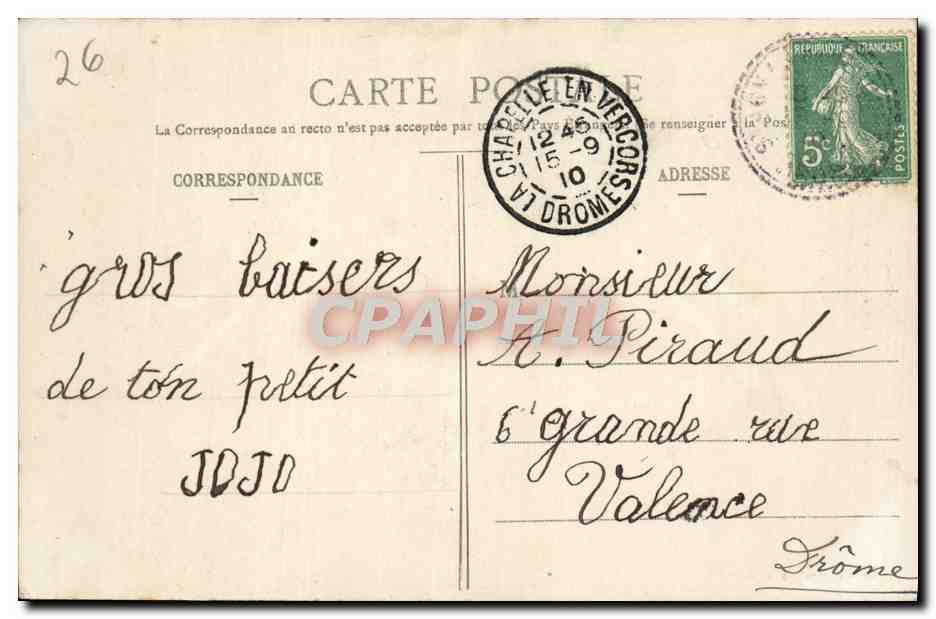 26
CARTE POSTALE
La Correspondance au recto n'est pas acceptée par tous les Pays Étrangers. Se renseigner à la Poste
CORRESPONDANCE
ADRESSE
LA CHAPELLE EN VERCORS
12 45
15 -9
10
DROME
REPUBLIQUE FRANÇAISE
5c
POSTES
gros baisers
de ton petit
JOJO
Monsieur
A. Piraud
6 grande rue
Valence
Drôme
CPAPHIL